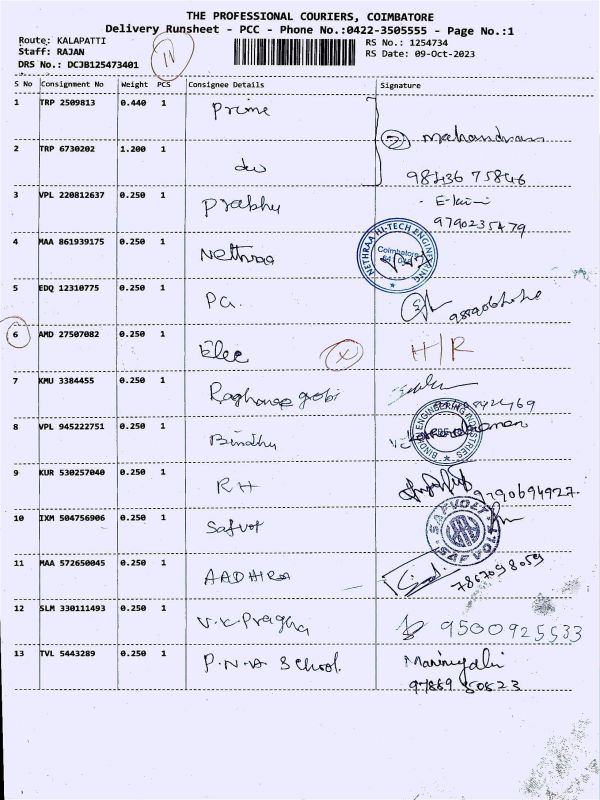 THE PROFESSIONAL COURIERS, COIMBATORE
Delivery Runsheet - PCC - Phone No.:0422-3505555 - Page No.:1
Route: KALAPATTI
Staff: RAJAN
DRS No.: DCJB125473401
IV
RS No.: 1254734
RS Date: 09-Oct-2023
S No Consignment No Weight PCS Consignee Details Signature
1 TRP 2509813 0.440 1 Prime
2 TRP 6730202 1.200 1 do
98436 75846
3 VPL 220812637 0.250 1 Prabhu
9790235479
4 MAA 861939175 0.250 1 Nethraa
NETHRAA HI-TECH ENGINEERING
Coimbatore
5 EDQ 12310775 0.250 1
6 AMD 27507082 0.250 1 Elec X H/R
7 KMU 3384455 0.250 1
8 VPL 945222751 0.250 1 Bindhu
BINDHU ENGINEERING INDUSTRIES
9 KUR 530257040 0.250 1 RH
9790694927
10 IXM 504756906 0.250 1 Safvolt
SAFVOLT
11 MAA 572650045 0.250 1 AADHIRA
7867098059
12 SLM 330111493 0.250 1 V.K.Pragha 9500925533
13 TVL 5443289 0.250 1 P.N.A School.
97869 50823